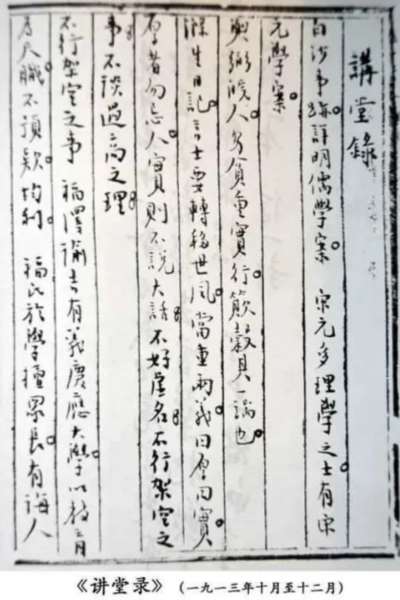 講堂錄
白沙事蹟詳明儒學案。宋元多理學之士有宋
元學案。
人多重實行一端也。
滌生日記言士要轉移世風當重兩義曰厚曰實。
厚者勿忌人實則不說大話不好虛名不行架空之
事不談過高之理
不行架空之事 福澤諭吉有慶應大學以教育
為天職不預 福氏於學擅長。有誨人
《讲堂录》（一九一三年十月至十二月）